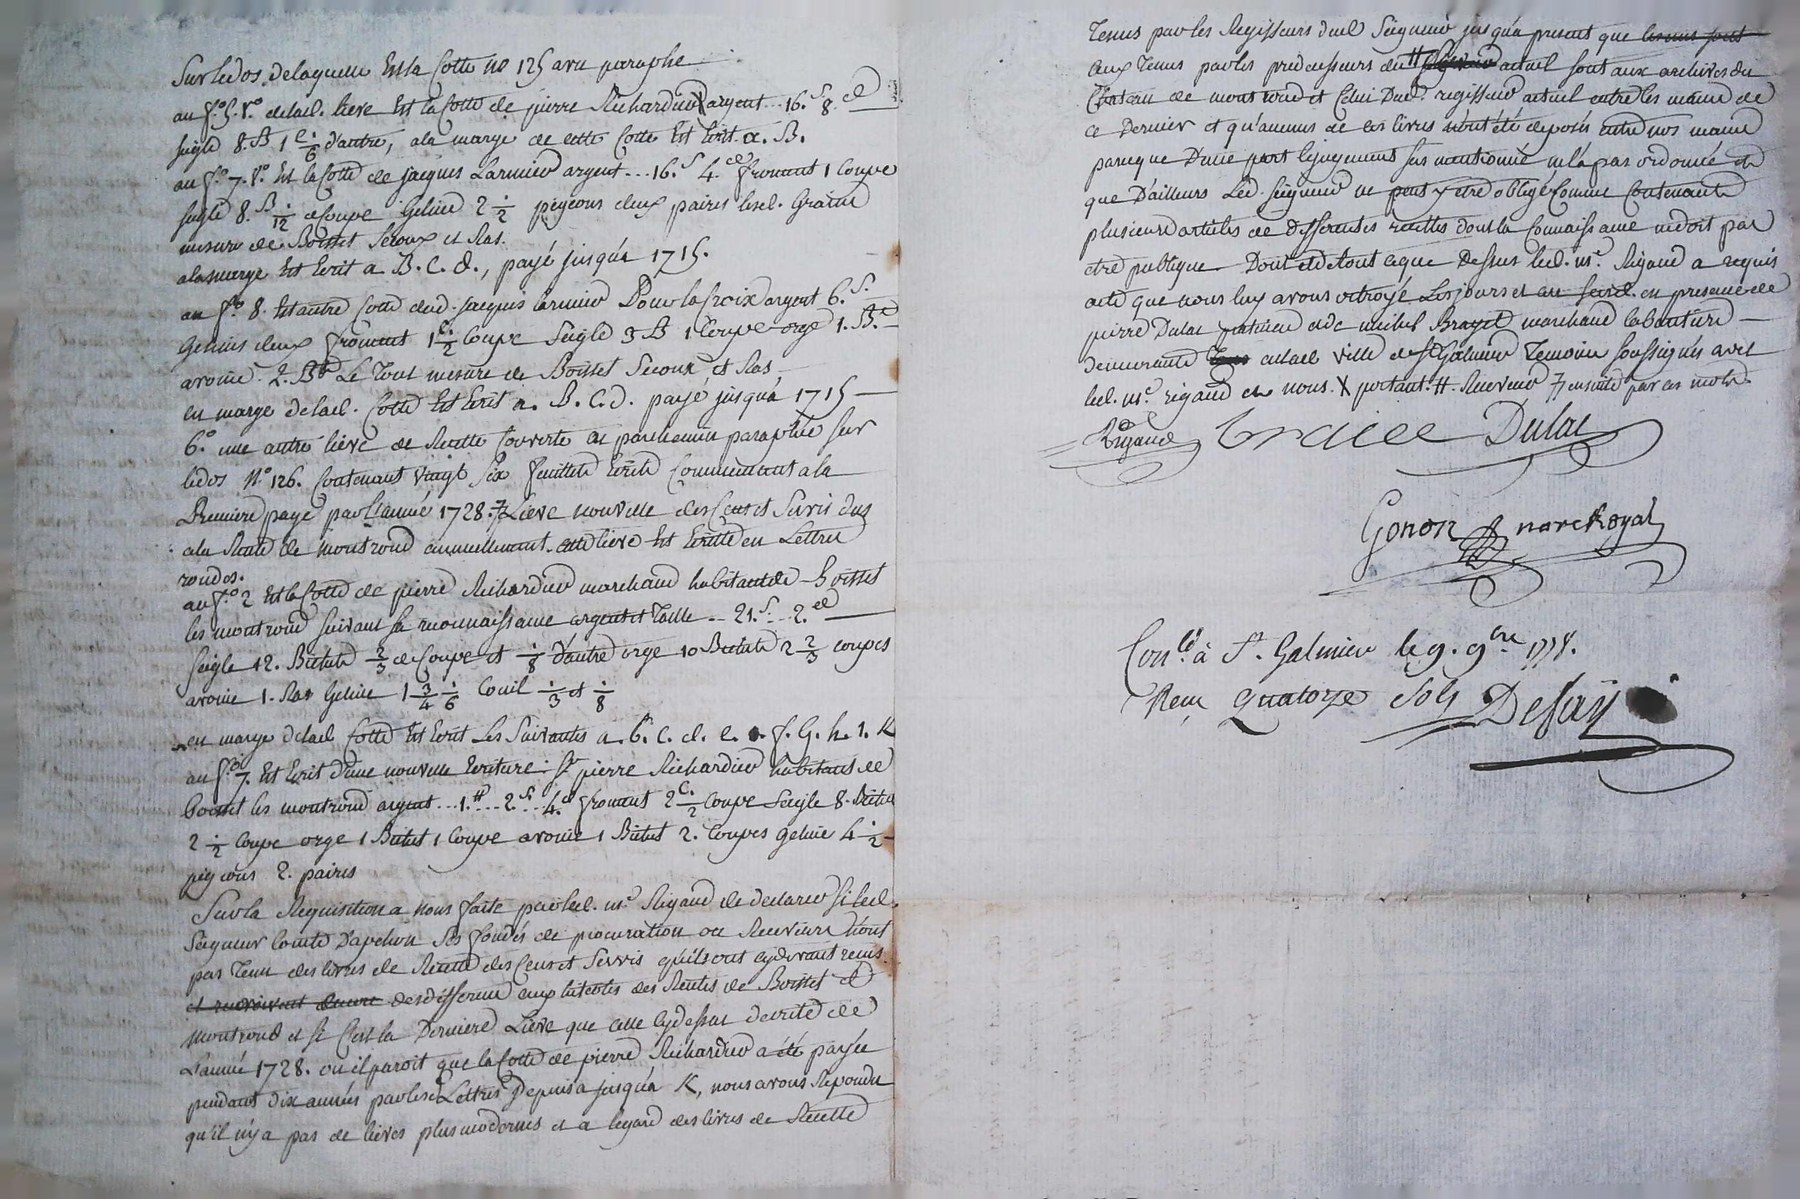 Sur le dos delaquelle Est la Cotte no 125 avec paraphe
au f.o 5. v.o delad. lieve Est la Cotte de pierre Richardier argent ... 16.s 8.d
seigle 8. B 1 c. 1/6 d'autre, a la marge de cette Cotte Est Ecrit a. B.
au f.o 7. v.o Est la Cotte de jacques Larmier argent ... 16.s 4.d froment 1 Coupe
seigle 8. B 1/12 de Coupe Geline 2 1/2 pigeons deux paires lesd. Grains
mesure de Boisset Secoux et Ras.
a la marge Est Ecrit a B. C. d., payé jusqu'à 1715.
au f.o 8. Est autre Cotte dud. jacques Larmier Pour la Croix argent 6.s
Gelines deux froment 1 c. 1/2 Coupe Seigle 3 B 1 Coupe orge 1. B.
avoine 2. B Le Tout mesure de Boisset Secoux et Ras
en marge delad. Cotte Est Ecrit a. B. C. d. payé jusqu'à 1715
6.o une autre lieve de Recette Couverte de parchemin paraphée sur
le dos N.o 126. Contenant vingt six feuillets Ecrits Commencant a la
Premiere page par l'année 1728. Lieve nouvelle des Cens et Servis dus
a la Rente de montrond annuellement. cette lieve Est Ecritte en Lettres
rondes.
au f.o 2 Est la Cotte de pierre Richardier marchand habitant de Boisset
les montrond suivant sa reconnaissance argent et Taille -- 21.s .. 2.d
seigle 12. Bichets 2/3 de Coupe et 1/8 d'autre orge 10 Bichets 2 2/3 coupes
avoine 1. Ras Geline 1 3/4 1/6 Conil 1/3 et 1/8
en marge delad. Cotte Est Ecrit Les Suivantes a. b. c. d. e. f. G. h. 1. K
au f.o 7. Est Ecrit d'une nouvelle Ecriture: Sr pierre Richardier habitant de
Boisset les montrond argent ... 1.# ... 2.s .. 4.d froment 2 c. 1/2 Coupe Seigle 8. Bichets
2 1/2 Coupe orge 1 Bichet 1 Coupe avoine 1 Bichet 2. Coupes geline 4 1/2
pigeons 2. paires
Sur la Requisition a nous faite par led. m.e Rigaud de declarer si led.
Seigneur Comte Dapchon Ses fondés de procuration ou Receveurs n'ont
pas Tenu des livres de Recette des Cens et Servis qu'ils ont cydevant recus
des differens emphiteotes des Rentes de Boisset et
Montrond et si C'est la Derniere Lieve que celle cy dessus decrite de
L'année 1728. ou il paroit que la Cotte de pierre Richardier a été payée
pendant dix années par les Lettres Depuis a jusqu'à K, nous avons Repondu
qu'il n'y a pas de lieves plus modernes et a l'egard des livres de Recette
Tenus par les Regisseurs dud Seigneur jusqu'à present que
ceux Tenus par les predecesseurs du # actuel sont aux archives du
Chateau de montrond et Celui Dud. regisseur actuel entre les mains de
ce Dernier et qu'aucuns de ces livres n'ont été deposés entre nos mains
parceque D'une part le jugement sus mentionné ne l'a pas ordonné et
que D'ailleurs Led. Seigneur ne peut y etre obligé Comme Contenants
plusieurs articles de differentes recettes dont la Connaissance ne doit pas
etre publique Dont et de tout ce que Dessus led. m.e Rigaud a requis
acte que nous luy avons octroyé Les jours et an susd. en presence de
pierre Dulac praticien et de michel marchand
demeurants en lad. ville de St Galmier Temoins soussignés avec
led. m.e rigaud et nous. X portant. # Receveur 7 ensuite par ces mots.
Rigaud Dulac
Gonon marc Royal
Con.lé à St. Galmier le 9. 9bre 1778.
Reçu Quatorze Sols Defay